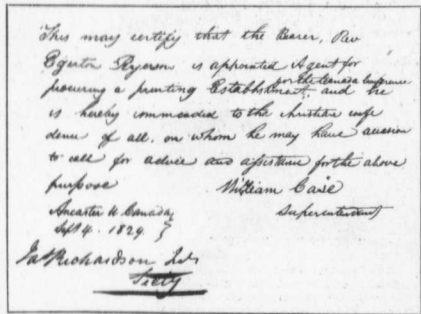 This may certify that the Bearer, Rev
Egerton Ryerson is appointed Agent for
procuring a printing Establishment, for the Canada Conference and he
is hereby commended to the christian confi
dence of all, on whom he may have occasion
to call for advice and assistance for the above
purpose
William Case
Superintendent
Ancaster U. Canada
Sept 4. 1829.
Jas Richardson
Secty